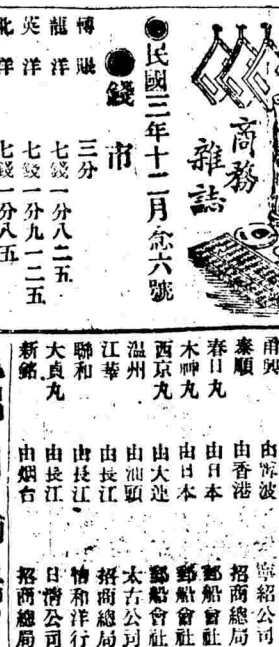 商務
雜誌
●民國三年十二月念六號
●錢市
博賬 三分
龍洋 七錢一分八二五
英洋 七錢一分九一二五
北洋 七錢一分八五
甬興 由寧波 寧紹公司
泰順 由香港 招商總局
春日丸 由日本 郵船會社
木神丸 由日本 郵船會社
西京丸 由大連 郵船會社
温州 由汕頭 太古公司
江華 由長江 招商總局
聯和 由長江 怡和洋行
大貞丸 由長江 日清公司
新銘 由烟台 招商總局